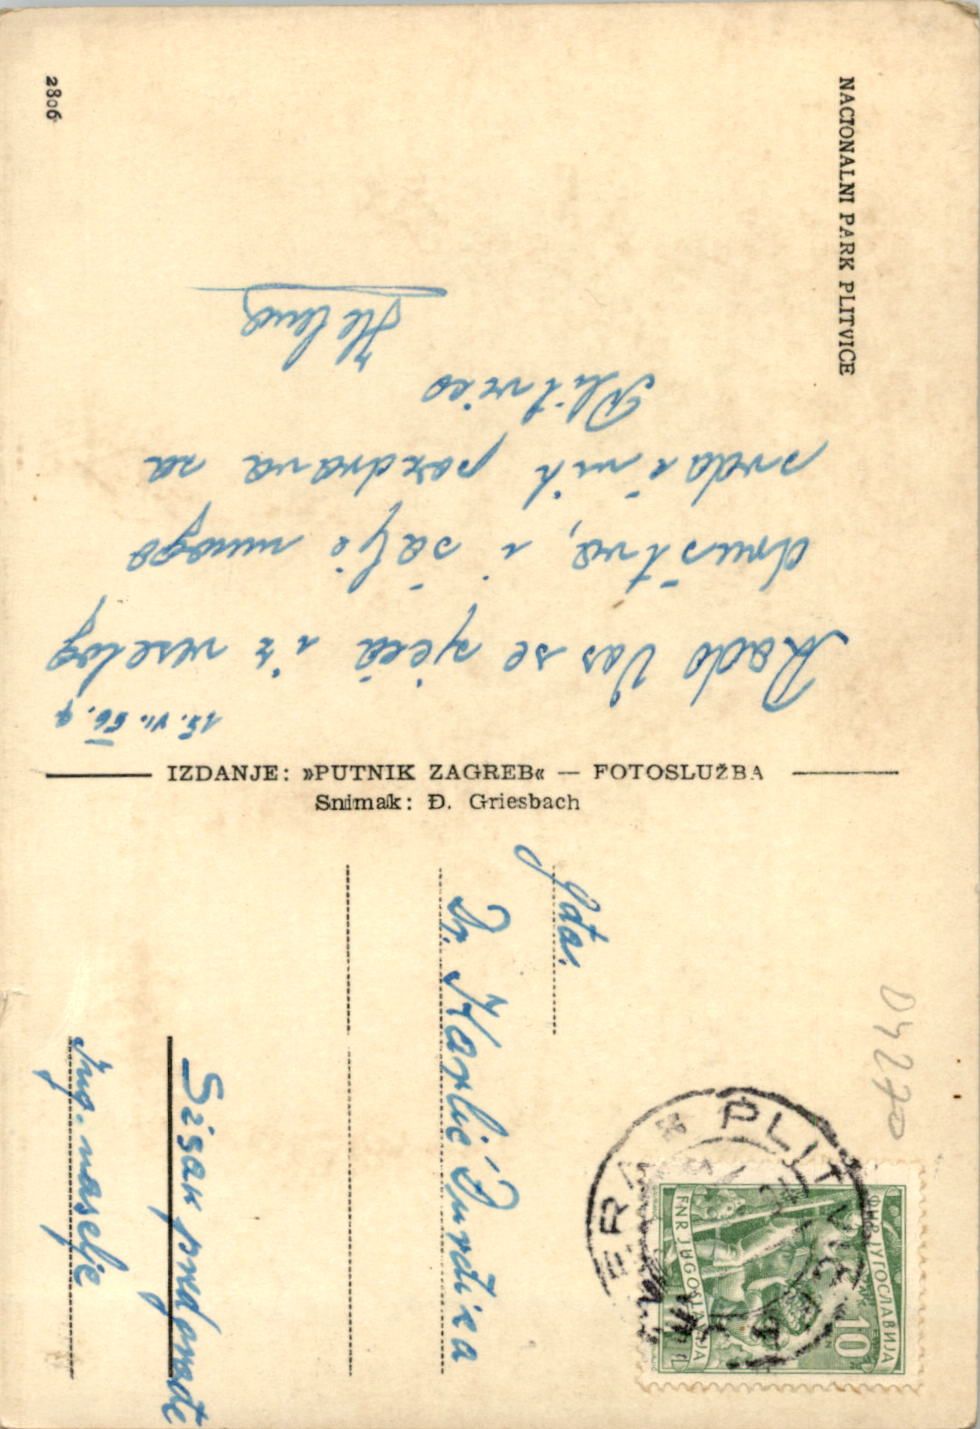 NACIONALNI PARK PLITVICE
2806
15. VI. 56. g
Rado Vas se sjeća i iz veselog
društva, i šalje mnogo
srdačnih pozdrava sa
Plitvica
IZDANJE: »PUTNIK ZAGREB« — FOTOSLUŽBA
Snimak: Đ. Griesbach
Gđa.
Dr. Karlić Đurđica
Sisak predgrađe
Inž. naselje
04270
PLIT
ФНР ЈУГОСЛАВИЈА
FNR JUGOSLAVIJA
10